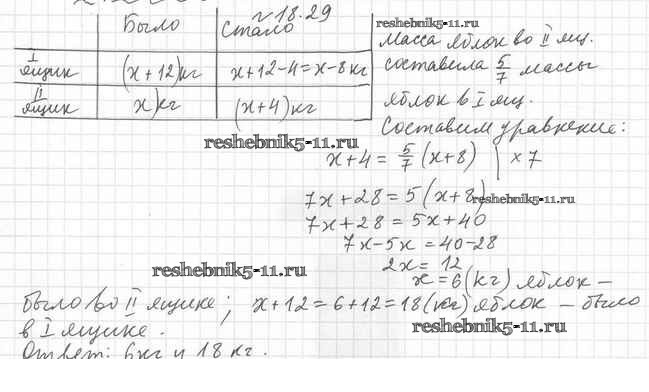 № 18.29
reshebnik5-11.ru
Было Стало
I ящик (x+12)кг x+12-4=x-8кг
II ящик x)кг (x+4)кг
reshebnik5-11.ru
Масса яблок во II ящ.
составила 5/7 массы
яблок в I ящ.
Составим уравнение:
x+4 = 5/7 (x+8) | ×7
7x+28 = 5(x+8)
reshebnik5-11.ru
7x+28 = 5x+40
7x-5x = 40-28
2x = 12
reshebnik5-11.ru
x = 6(кг) яблок –
было во II ящике; x+12=6+12=18(кг) яблок – было
в I ящике.
reshebnik5-11.ru
Ответ: 6кг и 18 кг.